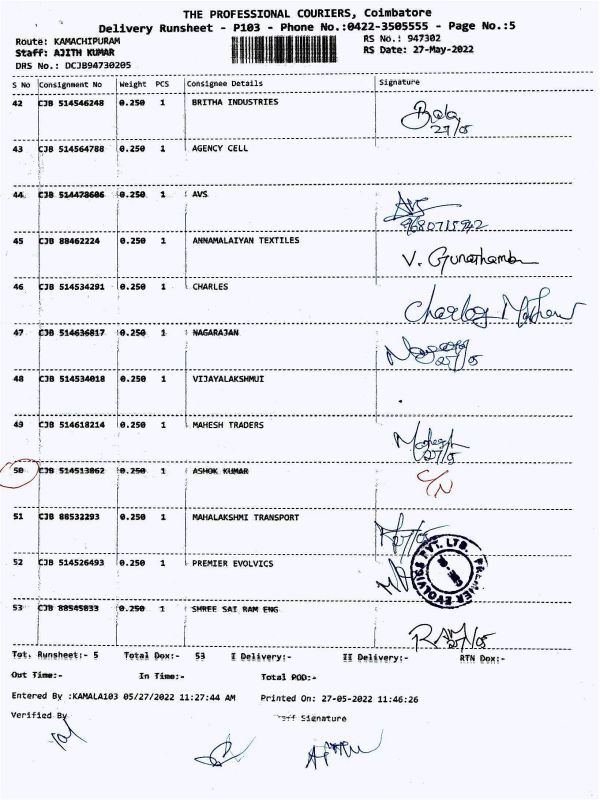 THE PROFESSIONAL COURIERS, Coimbatore
Delivery Runsheet - P103 - Phone No.:0422-3505555 - Page No.:5
Route: KAMACHIPURAM RS No.: 947302
Staff: AJITH KUMAR RS Date: 27-May-2022
DRS No.: DCJB94730205
S No Consignment No Weight PCS Consignee Details Signature
42 CJB 514546248 0.250 1 BRITHA INDUSTRIES
Bala
27/05
43 CJB 514564788 0.250 1 AGENCY CELL
44 CJB 514478606 0.250 1 AVS
AVS
9680715942
45 CJB 88462224 0.250 1 ANNAMALAIYAN TEXTILES
V. Gunathamba
46 CJB 514534291 0.250 1 CHARLES
Charles Mathew
47 CJB 514636817 0.250 1 NAGARAJAN
27/05
48 CJB 514534018 0.250 1 VIJAYALAKSHMUI
49 CJB 514618214 0.250 1 MAHESH TRADERS
Mahesh
27/05
50 CJB 514513862 0.250 1 ASHOK KUMAR
C/N
51 CJB 88532293 0.250 1 MAHALAKSHMI TRANSPORT
52 CJB 514526493 0.250 1 PREMIER EVOLVICS
PREMIER EVOLVICS PVT. LTD.
53 CJB 88545833 0.250 1 SHREE SAI RAM ENG
RAM
27/05
Tot. Runsheet:- 5 Total Dox:- 53 I Delivery:- II Delivery:- RTN Dox:-
Out Time:- In Time:- Total POD:-
Entered By :KAMALA103 05/27/2022 11:27:44 AM Printed On: 27-05-2022 11:46:26
Verified By Staff Signature